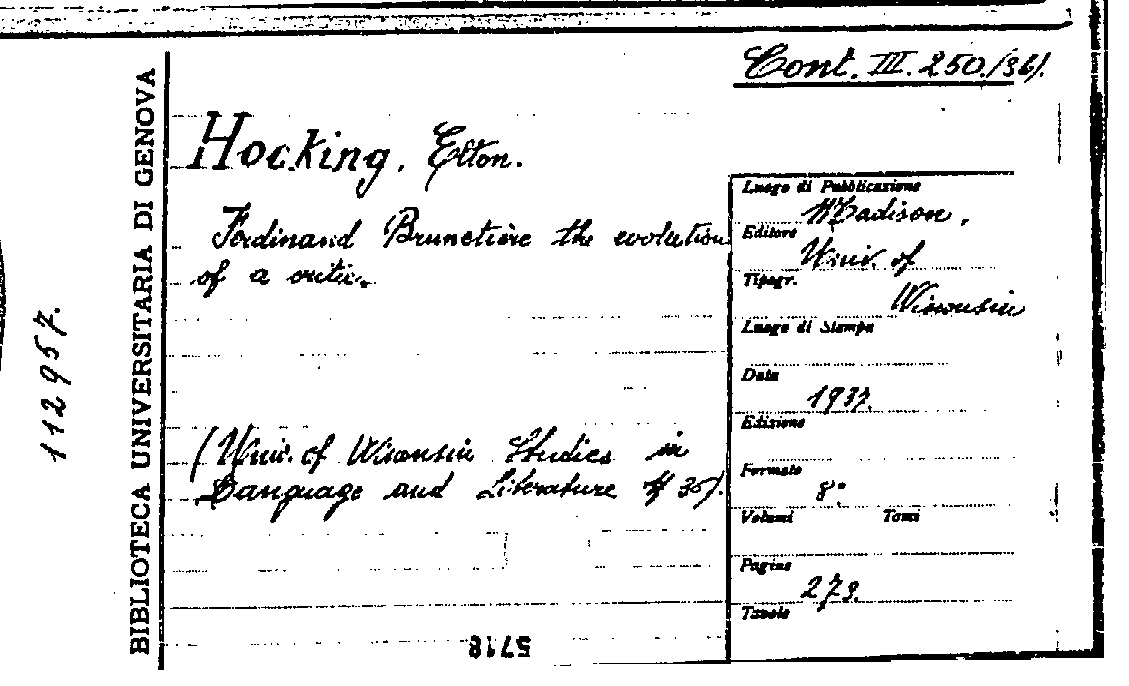 Cont. III. 250./36).
BIBLIOTECA UNIVERSITARIA DI GENOVA
112957.
Hocking, Elton.
Ferdinand Brunetière the evolution
of a critic.
(Univ. of Wisconsin Studies in
Language and Literature # 36).
Luogo di Pubblicazione
Madison,
Editore
Univ. of
Tipogr.
Wisconsin
Luogo di Stampa
Data
Edizione
Formato
8º
Volumi Tomi
Pagine
Tavole
5718